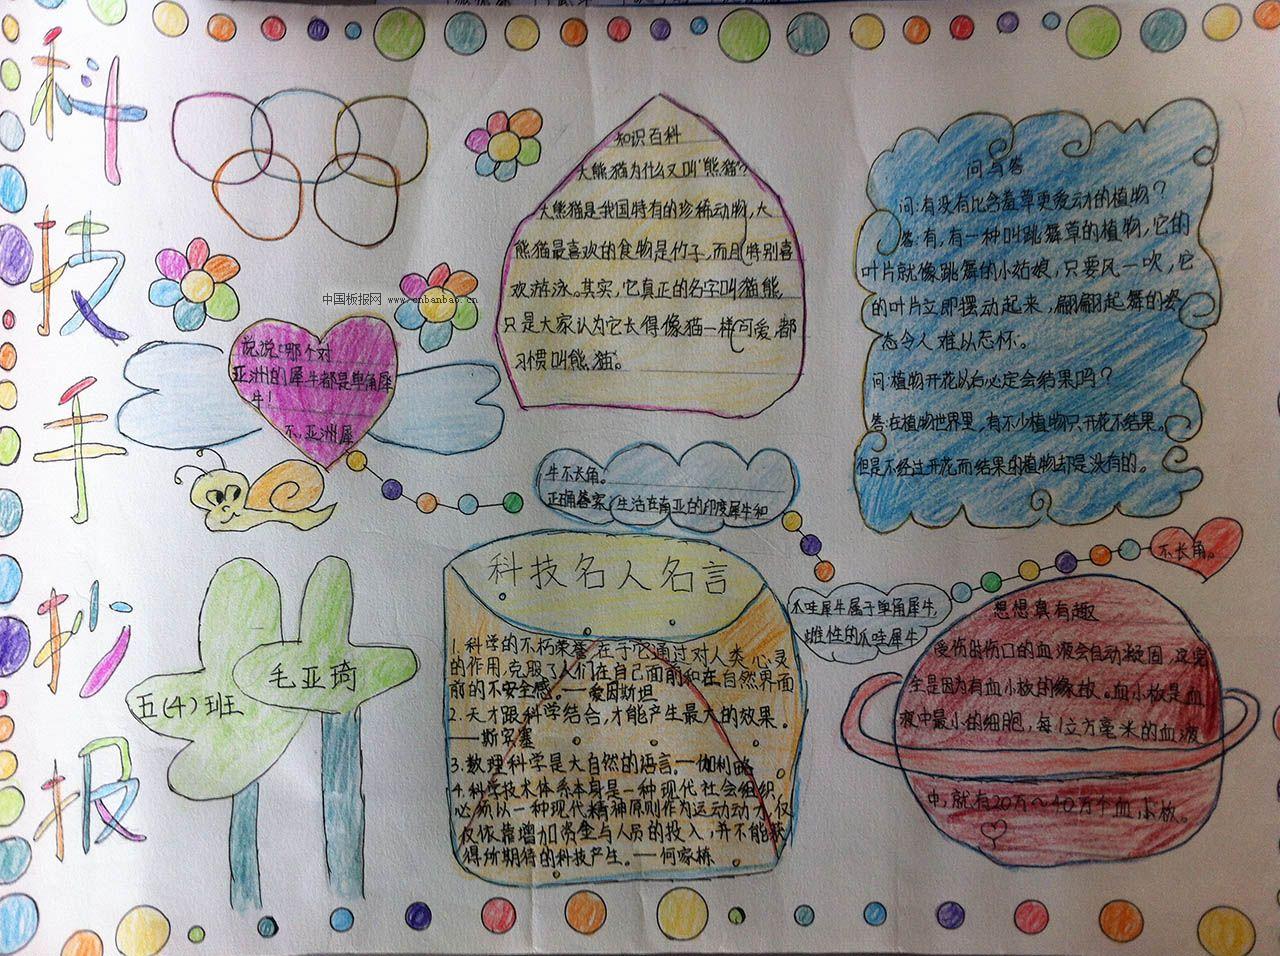 科技手抄报
中国板报网 www.cnbanbao.cn
知识百科
大熊猫为什么又叫"熊猫"?
大熊猫是我国特有的珍稀动物,大
熊猫最喜欢的食物是竹子,而且特别喜
欢游泳。其实,它真正的名字叫猫熊,
只是大家认为它长得像猫一样可爱,都
习惯叫熊猫。
问与答
问:有没有比含羞草更爱动的植物?
答:有,有一种叫跳舞草的植物,它的
叶片就像跳舞的小姑娘,只要风一吹,它
的叶片立即摆动起来,翩翩起舞的姿
态令人难以忘怀。
问:植物开花以后必定会结果吗?
答:在植物世界里,有不少植物只开花不结果。
但是不经过开花而结果的植物却是没有的。
说说:哪个对
亚洲的犀牛都是单角犀
牛!
不,亚洲犀
牛不长角。
正确答案:生活在南亚的印度犀牛和
爪哇犀牛属于单角犀牛,
雌性的爪哇犀牛
不长角。
五(4)班
毛亚琦
科技名人名言
1.科学的不朽荣誉,在于它通过对人类心灵
的作用,克服了人们在自己面前和在自然界面
前的不安全感。——爱因斯坦
2.天才跟科学结合,才能产生最大的效果。
——斯宾塞
3.数理科学是大自然的语言。——伽利略
4.科学技术体系本身是一种现代社会组织,
必须以一种现代精神原则作为运动动力,仅
仅依靠增加资金与人员的投入,并不能获
得所期待的科技产生。——何家栋
想想真有趣
受伤时伤口的血液会自动凝固,这完
全是因为有血小板的缘故。血小板是血
液中最小的细胞,每1立方毫米的血液
中,就有20万~40万个血小板。